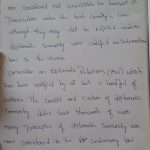 are considered not susceptible to lawsuit or
Prosecution under the host country's laws,
although they may still be expelled
diplomatic immunity was codified as international
law in the Vienna
Convention on Diplomatic Relations (1961) which
has been ratified by all but a handful of
nations. The concept and custom of diplomatic
immunity dates back thousands of years.
Many principles of diplomatic immunity are
now considered to be customary law